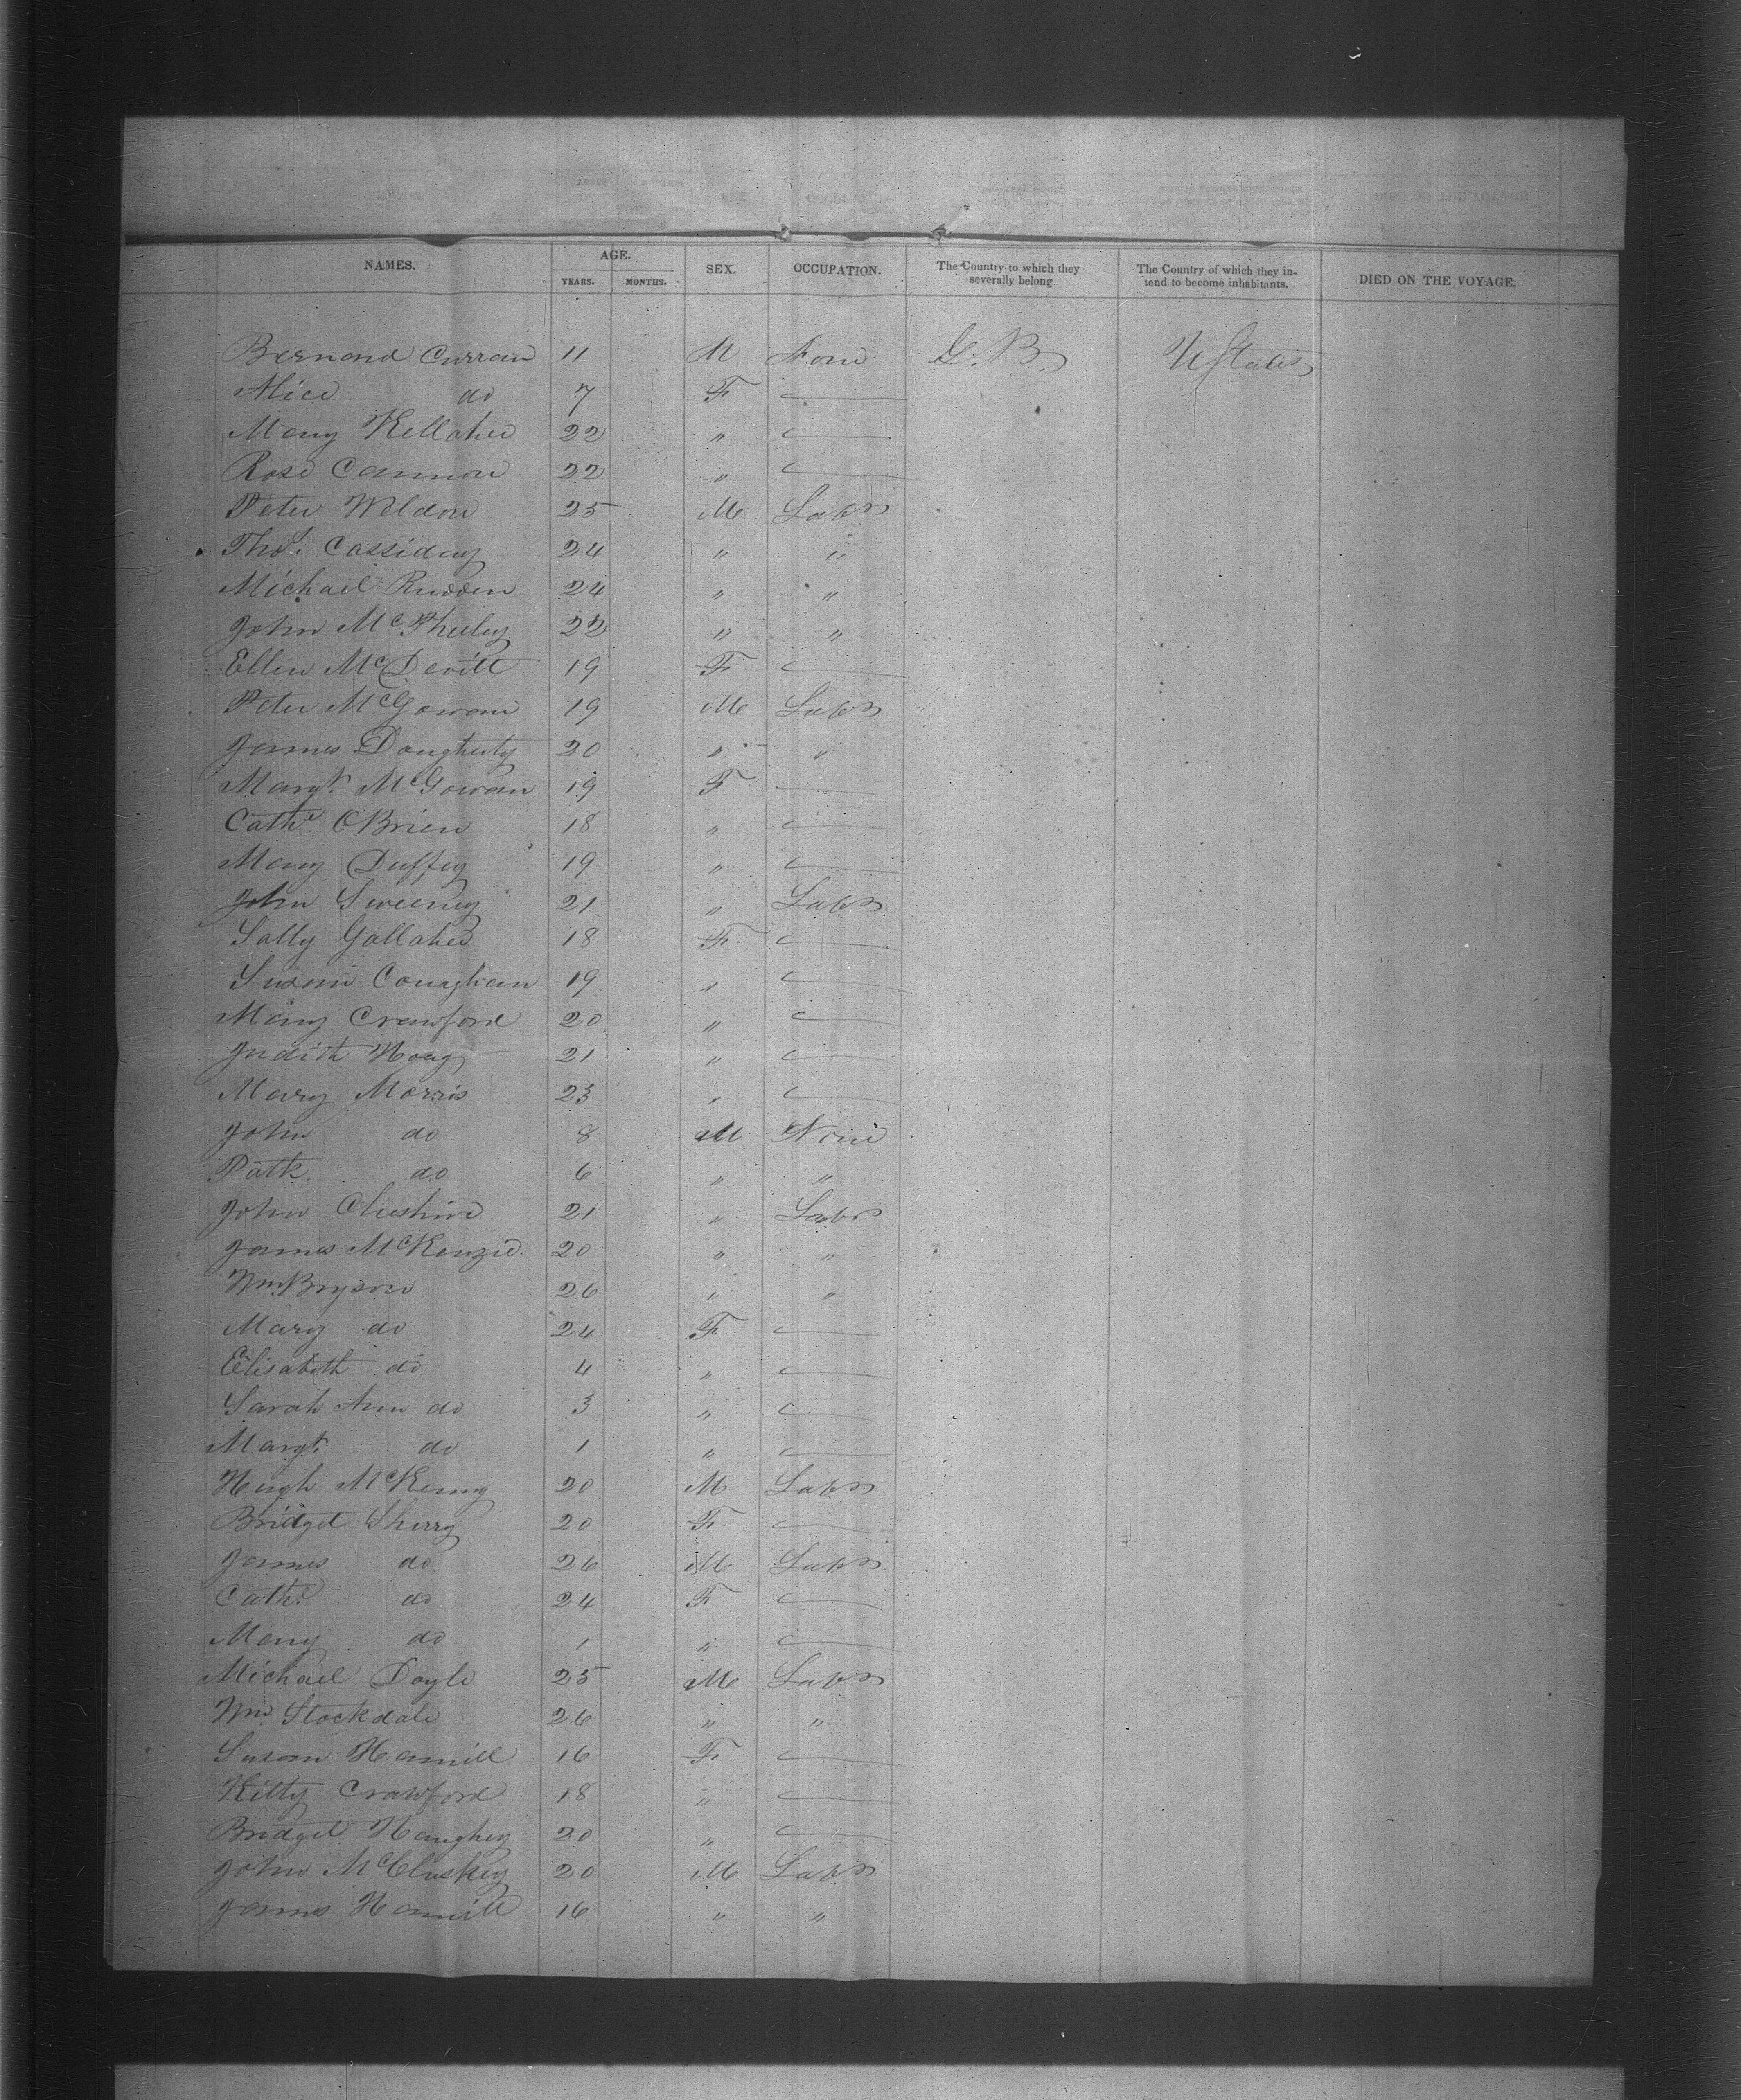 NAMES. AGE. SEX. OCCUPATION. The Country to which they severally belong The Country of which they in- tend to become inhabitants. DIED ON THE VOYAGE.
YEARS. MONTHS.
Bernard Curran 11 M None G.B. UStates
Alice do 7 F —
Mary Kellaher 22 " —
Rose Cannon 22 " —
Peter Weldon 25 M Labr
Thos. Cassiday 24 " "
Michael Rudden 24 " "
John McPheeley 22 " "
Ellen McDevitt 19 F —
Peter McGowan 19 M Labr
James Dougherty 20 " "
Margt. McGowan 19 F —
Cathe. OBrien 18 " —
Mary Duffey 19 " —
John Sweeney 21 " Labr
Sally Gallaher 18 F —
Susan Conaghan 19 " —
Mary Crawford 20 " —
Judith Hoay 21 " —
Mary Morris 23 " —
John do 8 M None
Patk. do 6 " "
John Cheshire 21 " Labr
James McKenzie. 20 " "
Wm. Bryson 26 " "
Mary do 24 F —
Elisabeth do 4 " —
Sarah Ann do 3 " —
Margt. do 1 " —
Hugh McKenny 20 M Labr
Bridget Sherry 20 F —
James do 26 M Labr
Cathe. do 24 F —
Mary do 1 " —
Michael Doyle 25 M Labr
Wm. Stockdale 26 " "
Susan Hamill 16 F —
Kitty Crawford 18 " —
Bridget Haughey 20 " —
John McCluskey 20 M Labr
James Hamill 16 " "